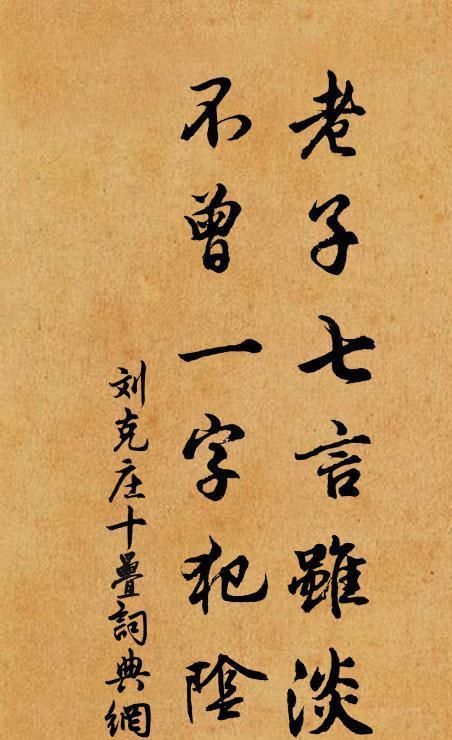 老子七言雖淡
不曾一字犯陰
刘克庄十疊詞典網